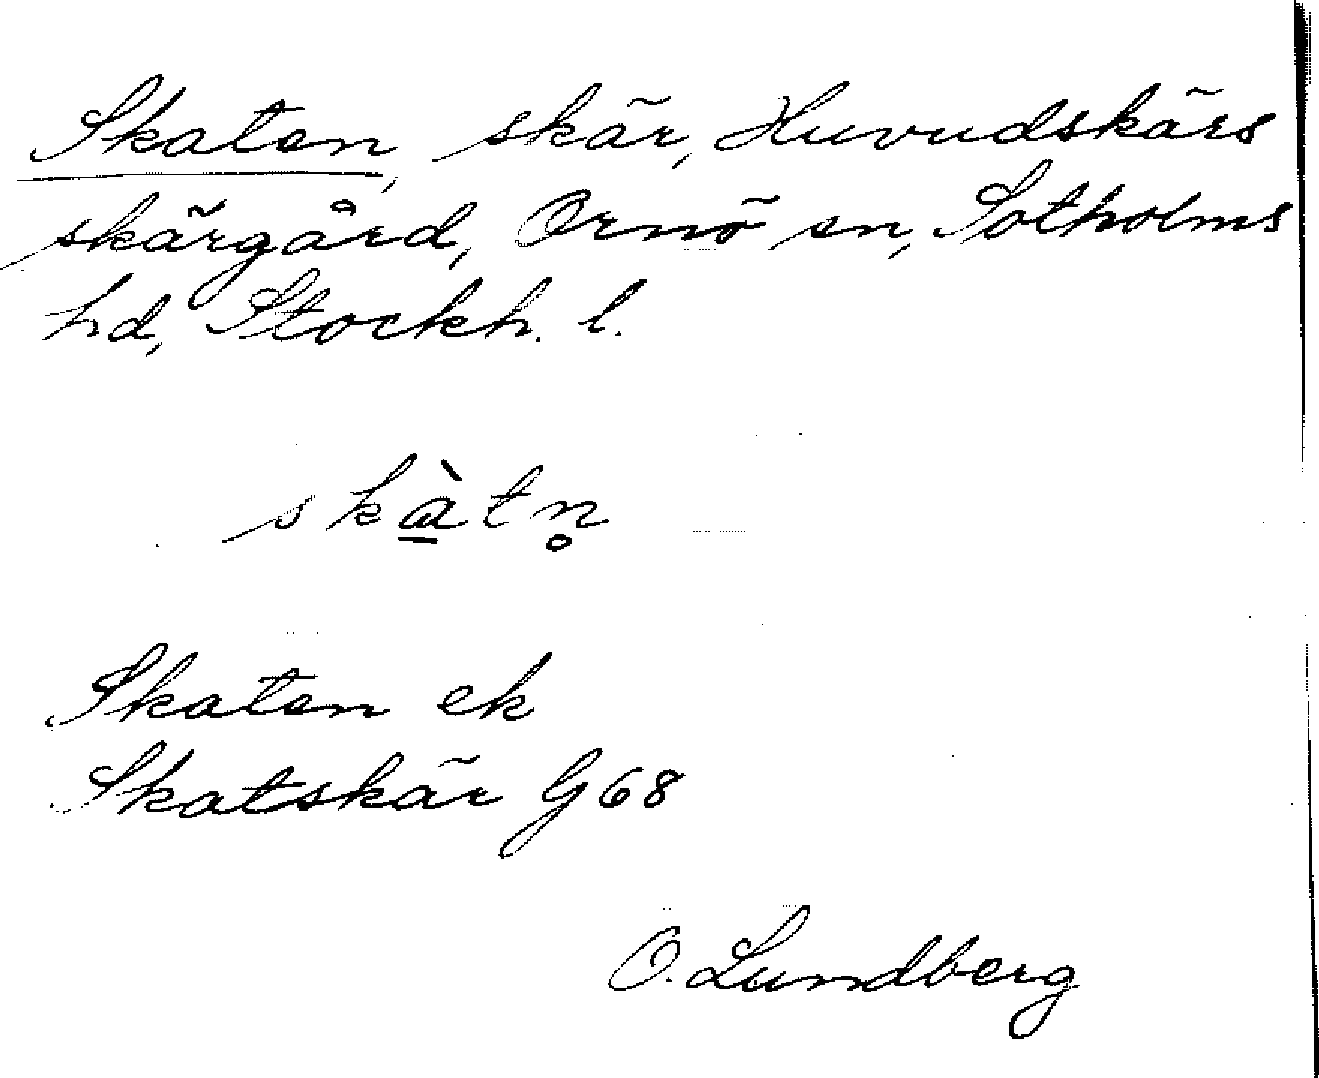 Skaten, skär, Huvudskärs
skärgård, Ornö sn, Sotholms
hd, Stockh. l.
skà̱tn̥
Skaten ek
Skatskär G68
O. Lundberg